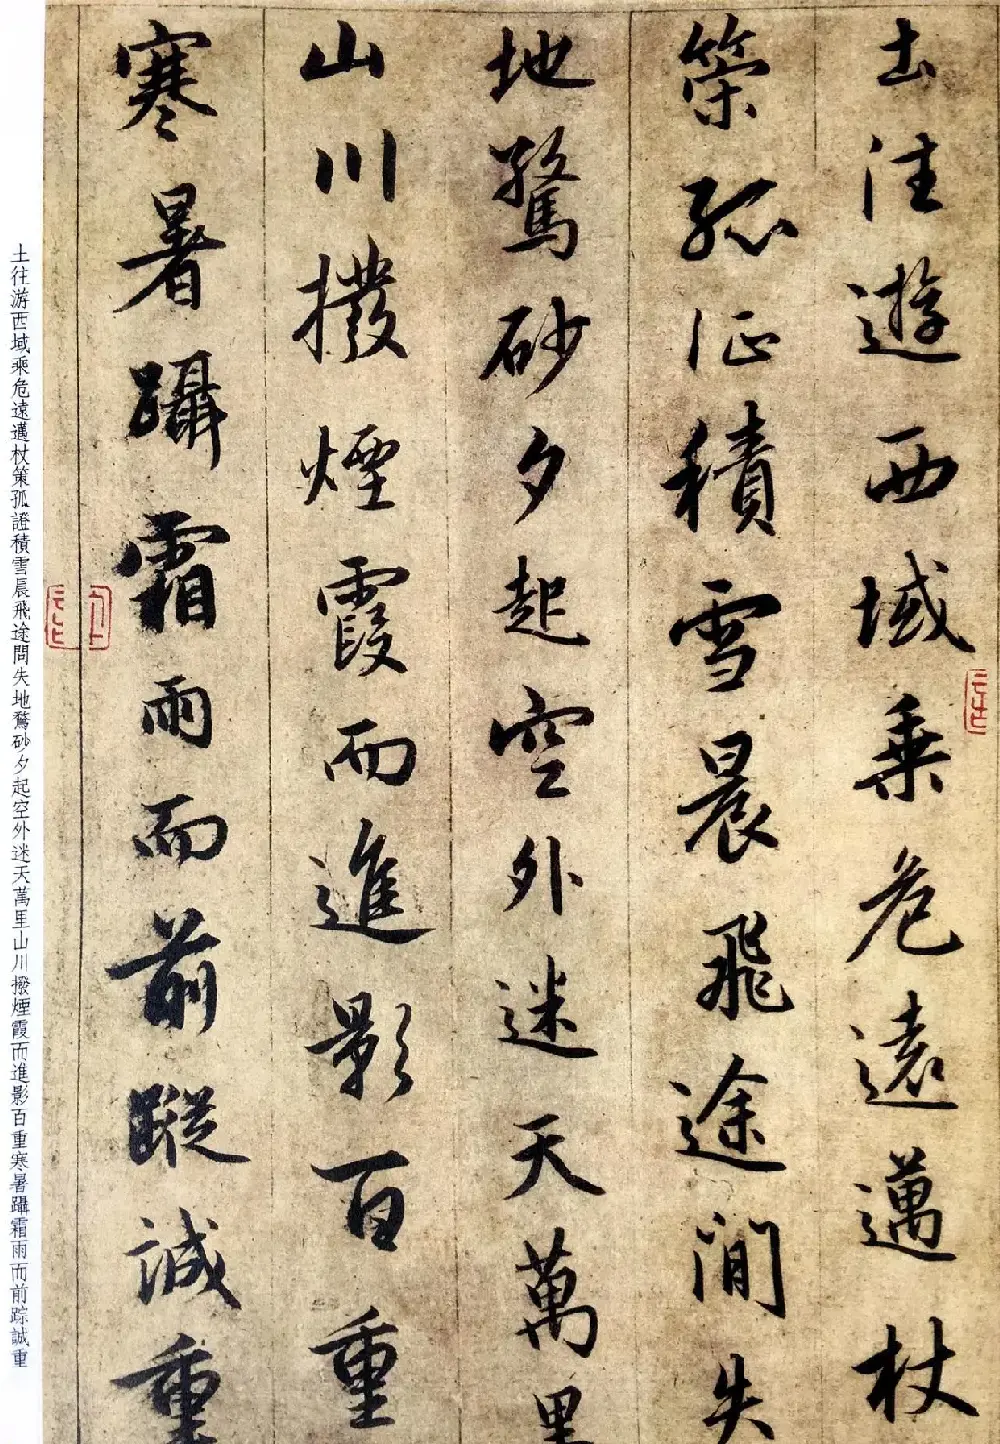 土往遊西域乗危遠邁杖
策孤征積雪晨飛途間失
地驚砂夕起空外迷天萬里
山川撥煙霞而進影百重
寒暑躡霜雨而前蹤誠重
土往游西域乘危遠邁杖策孤證積雪晨飛途間失地驚砂夕起空外迷天萬里山川撥煙霞而進影百重寒暑躡霜雨而前踪誠重